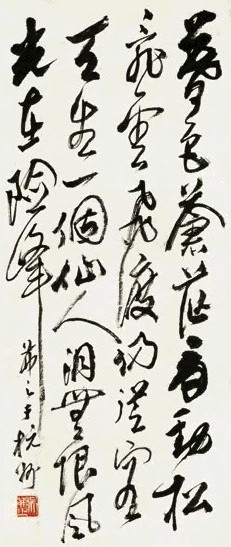 暮色蒼茫看勁松
亂雲飛渡仍從容
天生一個仙人洞無限風
光在險峰
茀之 杭州